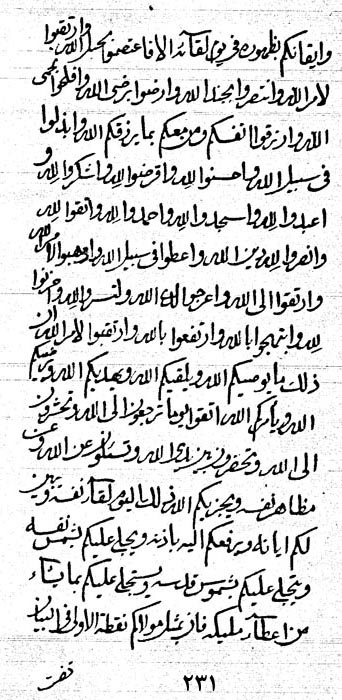 وايقانكم بظهوره في يوم لقآئه الا فاعتصموا بحبل الله وارتقبوا
لامر الله وانتصروا بجند الله وارضوا برضى الله وافلحوا
الله وارزقوا انفسكم ومن معكم بما يرزقكم الله وابذلوا
في سبيل الله واحسنوا لله واقرضوا لله واشكروا لله و
اعبدوا لله واسجدوا لله واحمدوا لله واتقوا لله
وانصروا لدين الله واعطوا في سبيل الله وارهبوا
وارتقوا الى الله واعرجوا الى الله
لله وابتهجوا بالله وارتفعوا بالله وارتقبوا لامر الله ان
ذلك ما يوصيكم الله ويلقيكم الله ويهديكم الله
الله ويأمركم الله اتقوا يوما ترجعون الى الله وتحشرون
الى الله وتحضرون بين يدي الله وتسئلون عن الله وعن
مظاهر نفسه ويجزيكم الله في ذلك اليوم لقآء نفسه ويبين
لكم اياته ويرفعكم اليه باذنه ويجلي عليكم بشمس نفسه
ويتجلى عليكم بشموس قدسه ويستجلي عليكم بما يشآء
من اعطآء مليكه فان يثلموا لكم نقطة الاولى في البيان
٢٣١